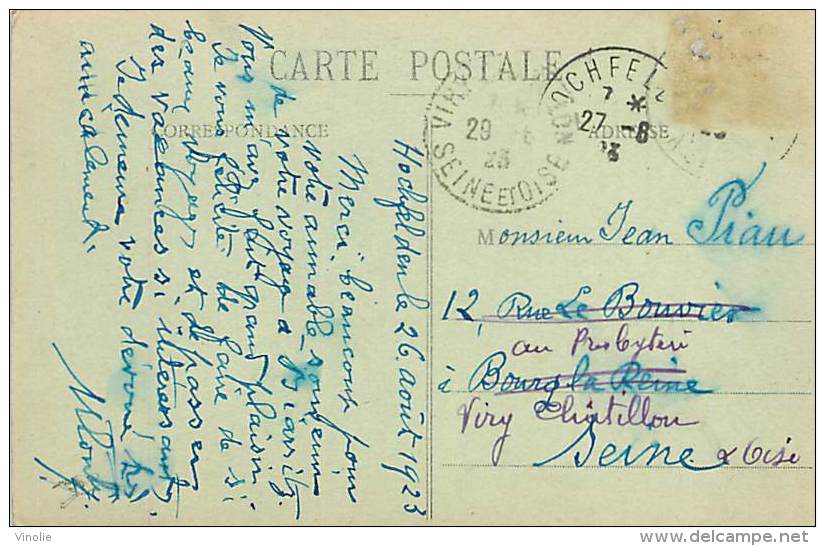 CARTE POSTALE
CORRESPONDANCE
ADRESSE
Hochfelden le 26 août 1923
Merci beaucoup pour
votre aimable souvenir
de votre voyage à Biarritz.
Vous m'avez fait grand plaisir
Je vous félicite de faire de si
beaux voyages et de passer
des vacances si intéressantes
Je demeure votre dévoué
amicalement.
HOCHFEL
7 *
27 -8
23
VIR
29
23
SEINE ET OISE
Monsieur Jean Piau
12, Rue Le Bouvier
au Presbytère
à Bourg la Reine
Viry Châtillon
Seine & Oise
Vinolie
delcampe.net